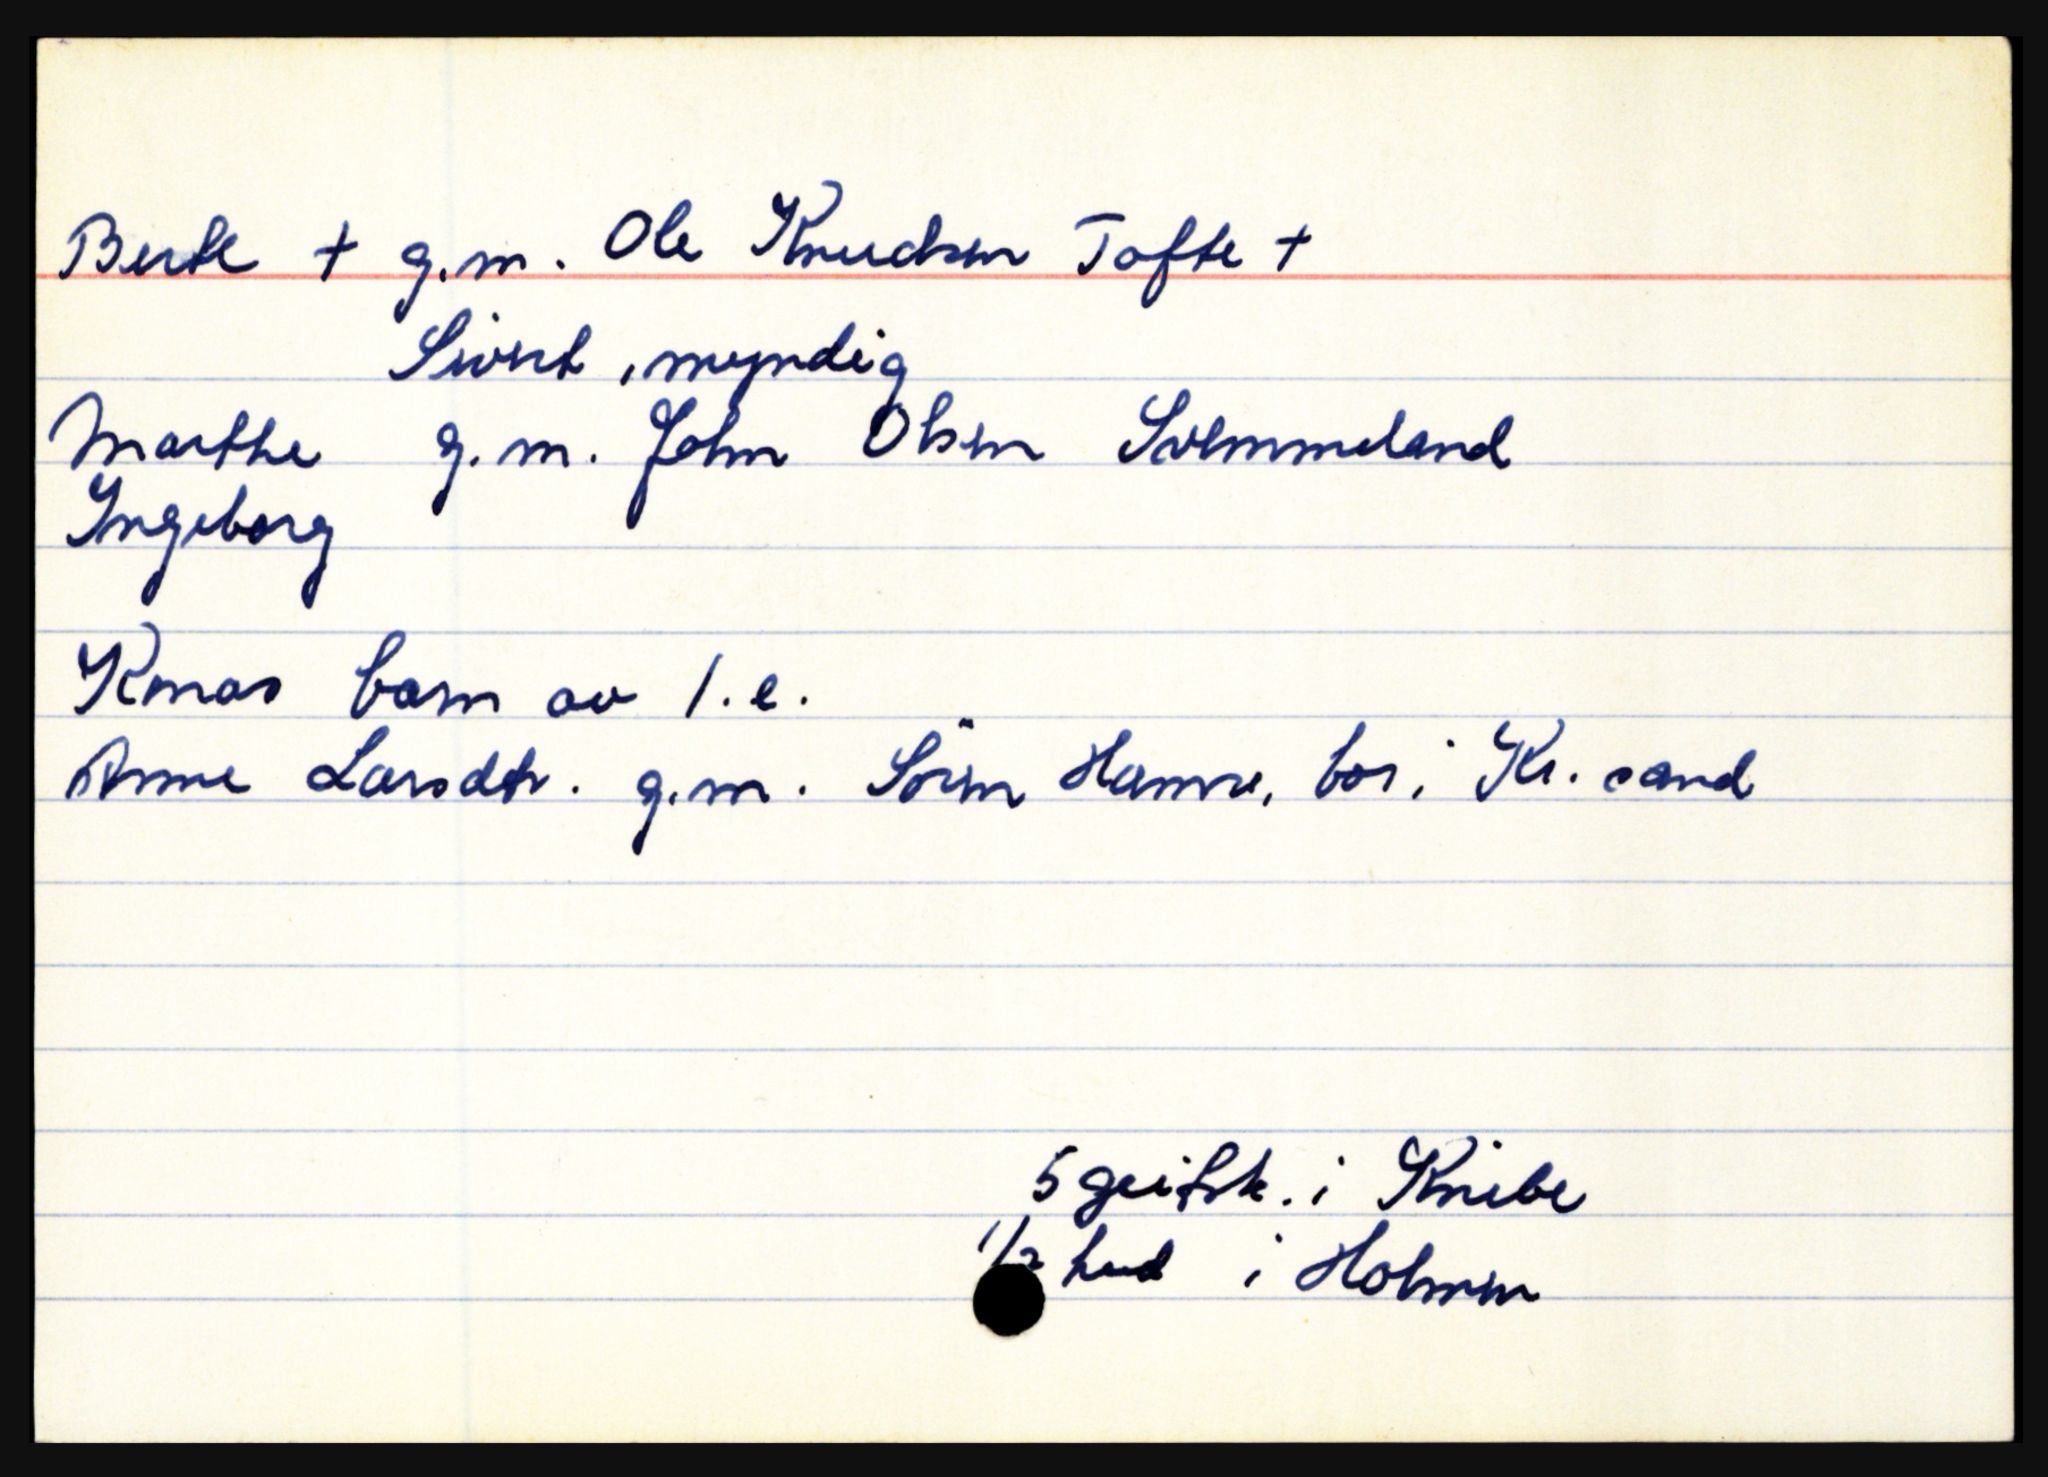 Berte + g.m. Ole Knudsen Tofte +
Sivert, myndig
Marthe g.m. John Olsen Svimmeland
Ingeborg
Konas barn av 1. e.
Anne Larsdtr. g.m. Sörin Hamre, bor i Kr. sand
5 geitsk. i Knibe
1/2 hud i Holmen